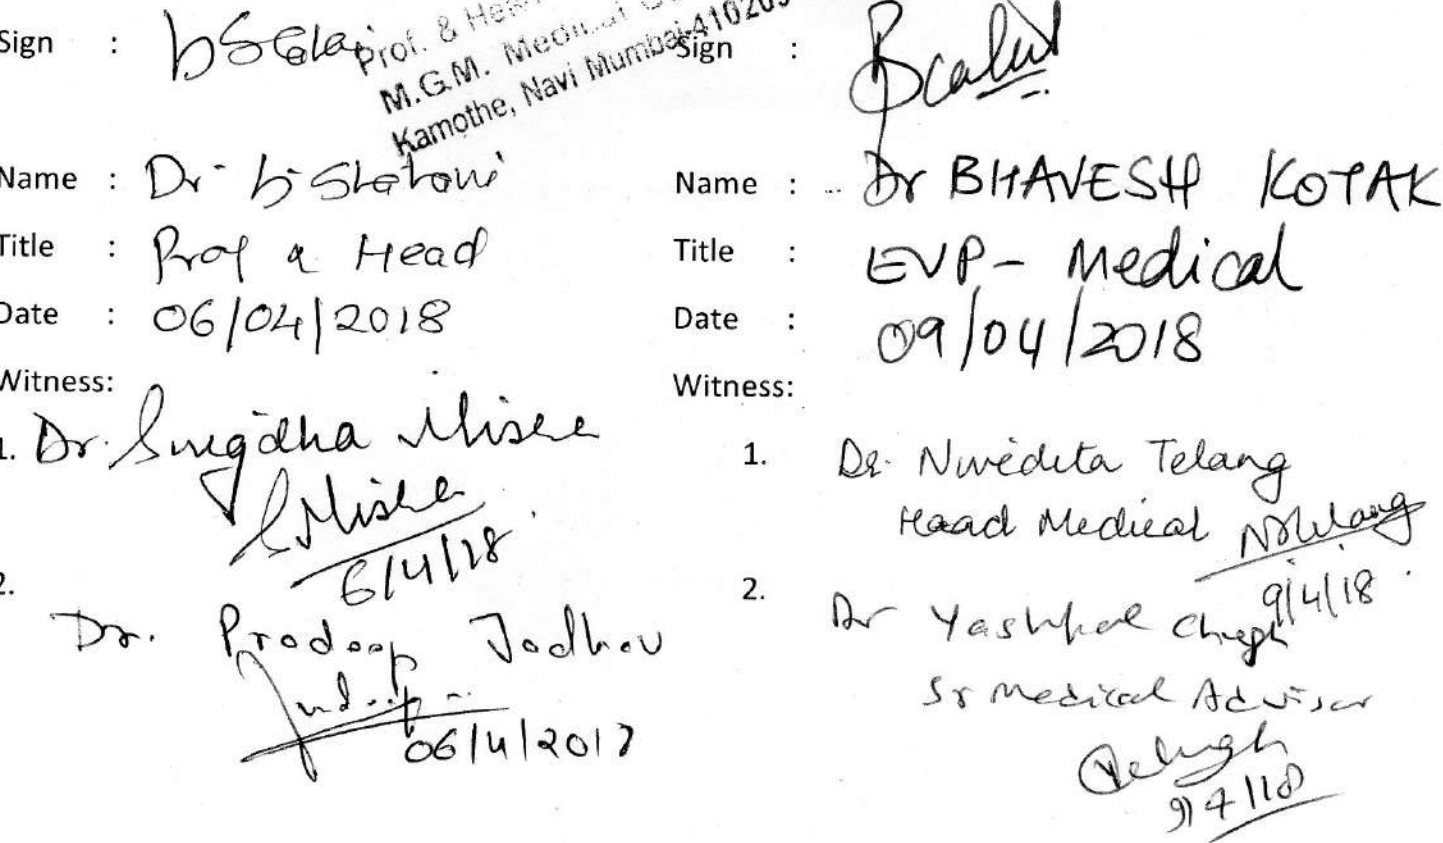 Sign :
Prof. & He
M.G.M. Medical
Kamothe, Navi Mumbai-410209
Name :
Title : Prof & Head
Date : 06/04/2018
Witness:
1. Dr. Snigdha Misra
SMisra
6/4/18
2.
Dr. Pradeep Jadhav
06/4/2017
Sign :
Name : Dr BHAVESH KOTAK
Title : EVP - Medical
Date : 09/04/2018
Witness:
1. Dr. Nivedita Telang
Head Medical
9/4/18
2. Dr Yashpal Chugh
Sr Medical Advisor
9/4/18